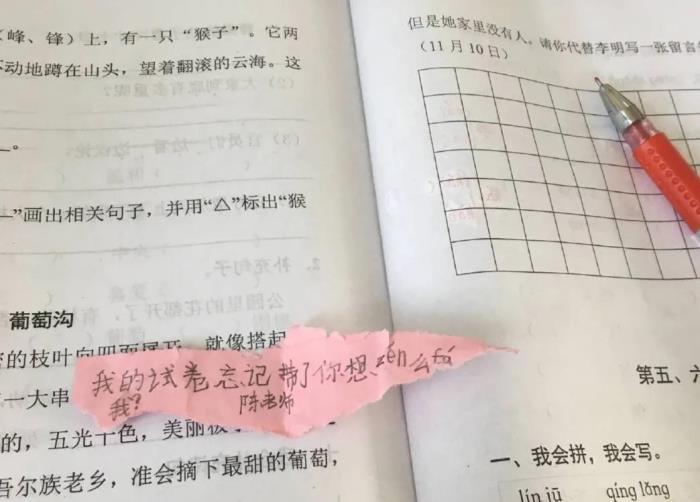 （峰、锋）上，有一只“猴子”。它两
不动地蹲在山头，望着翻滚的云海。这
。
”画出相关句子，并用“△”标出“猴
葡萄沟
的枝叶向四面展开，就像搭起
一大串
的，五光十色，美丽
吾尔族老乡，准会摘下最甜的葡萄，
我的试卷忘记带了你想zěn么fá
我？
陈老师
但是她家里没有人，请你代替李明写一张留言
（11月10日）
第五、六
一、我会拼，我会写。
lín jū qíng lǎng